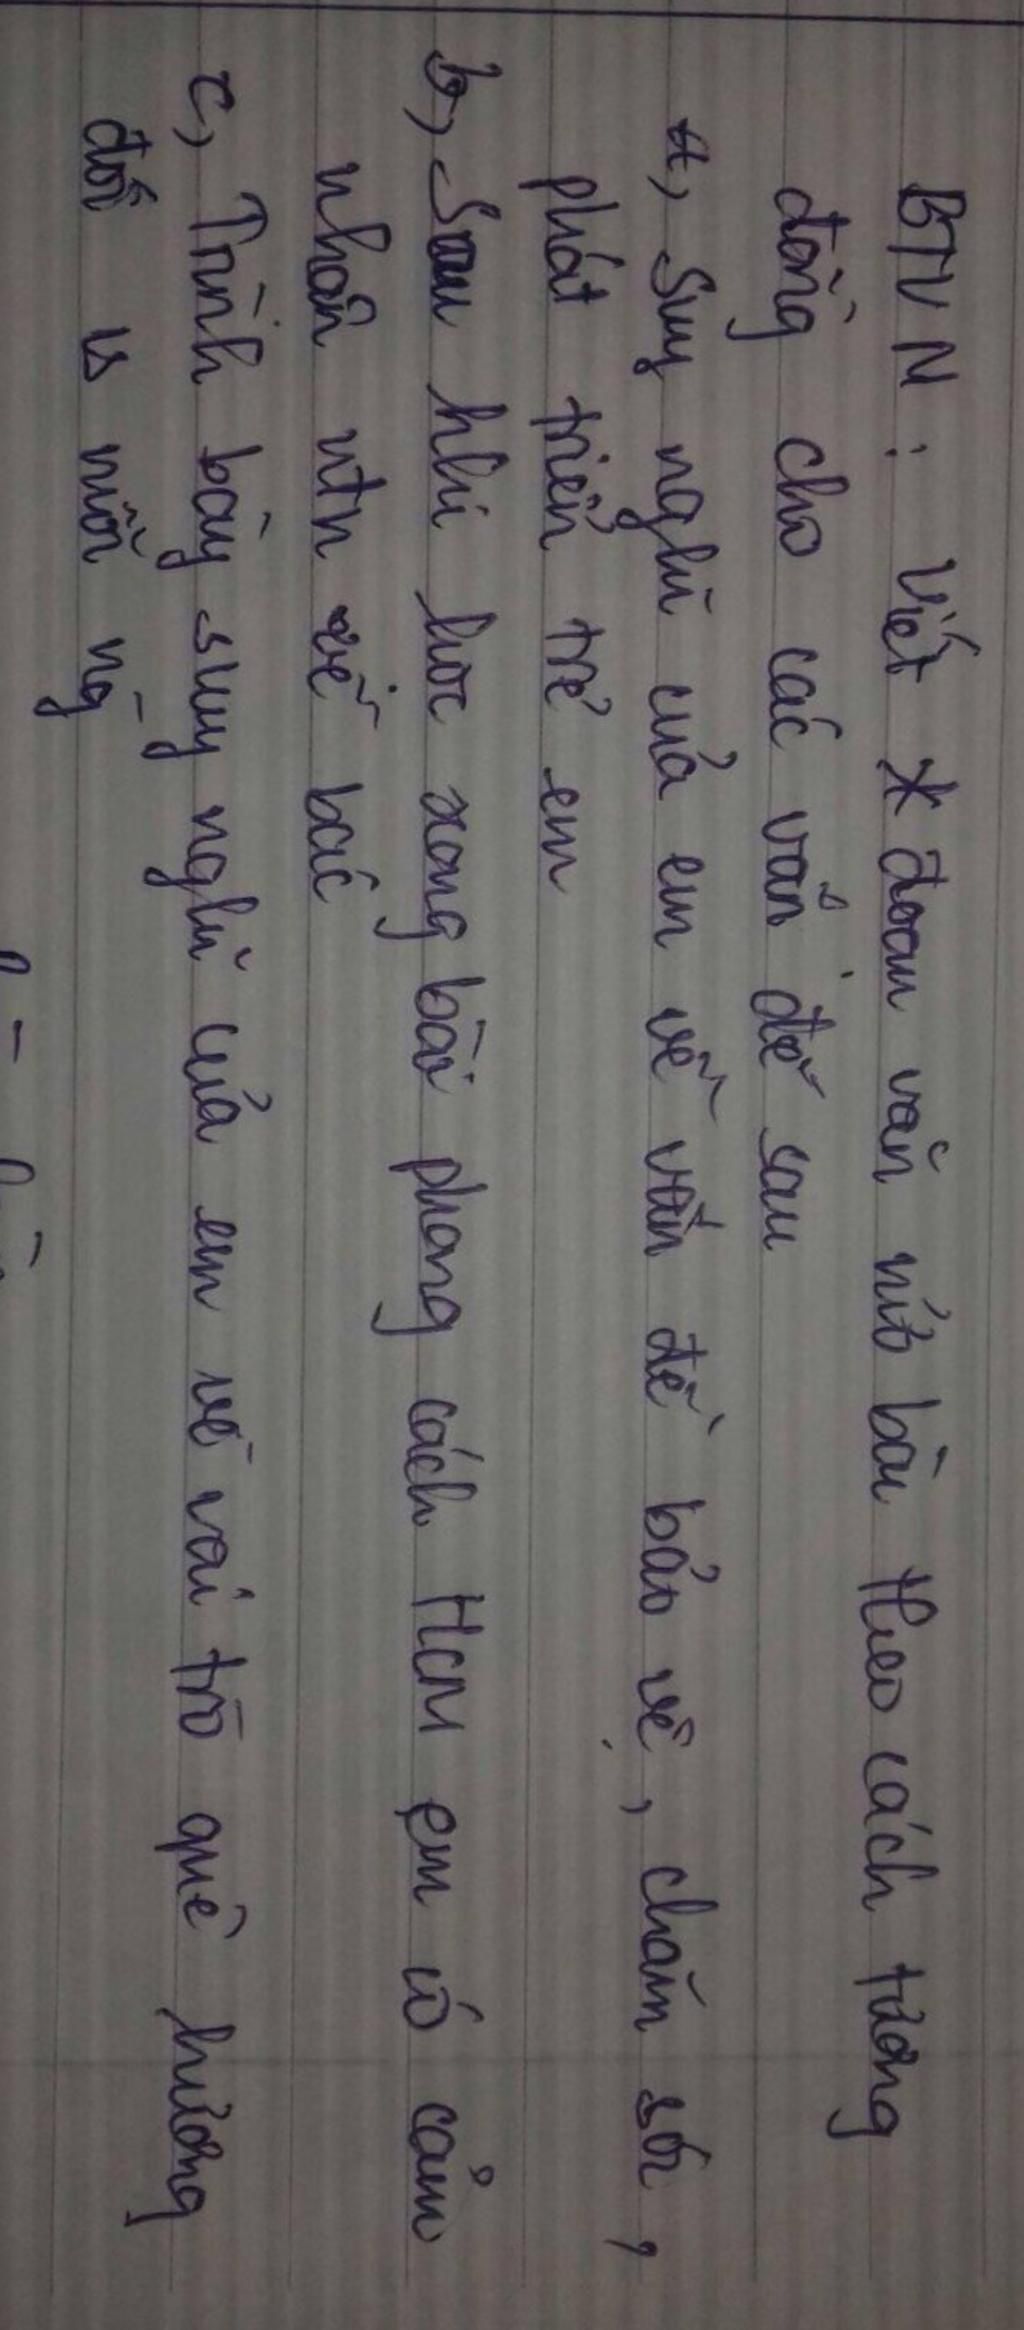 BTVN : Viết * đoạn văn mb bài theo cách tương
đồng cho các vấn đề sau
a, Suy nghĩ của em về vấn đề bảo vệ, chăm sóc,
phát triển trẻ em
b, Sau khi học xong bài phong cách HCM em có cảm
nhận ntn về bác
c, Trình bày suy nghĩ của em về vai trò quê hương
đối vs mỗi ng